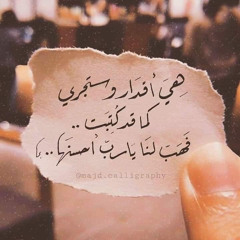 هِيَ أقدَار وستجري
كما قد كُتِبَت ..
فَهَب لنَا يَاربّ أحسنَها ..
@majd.calligraphy